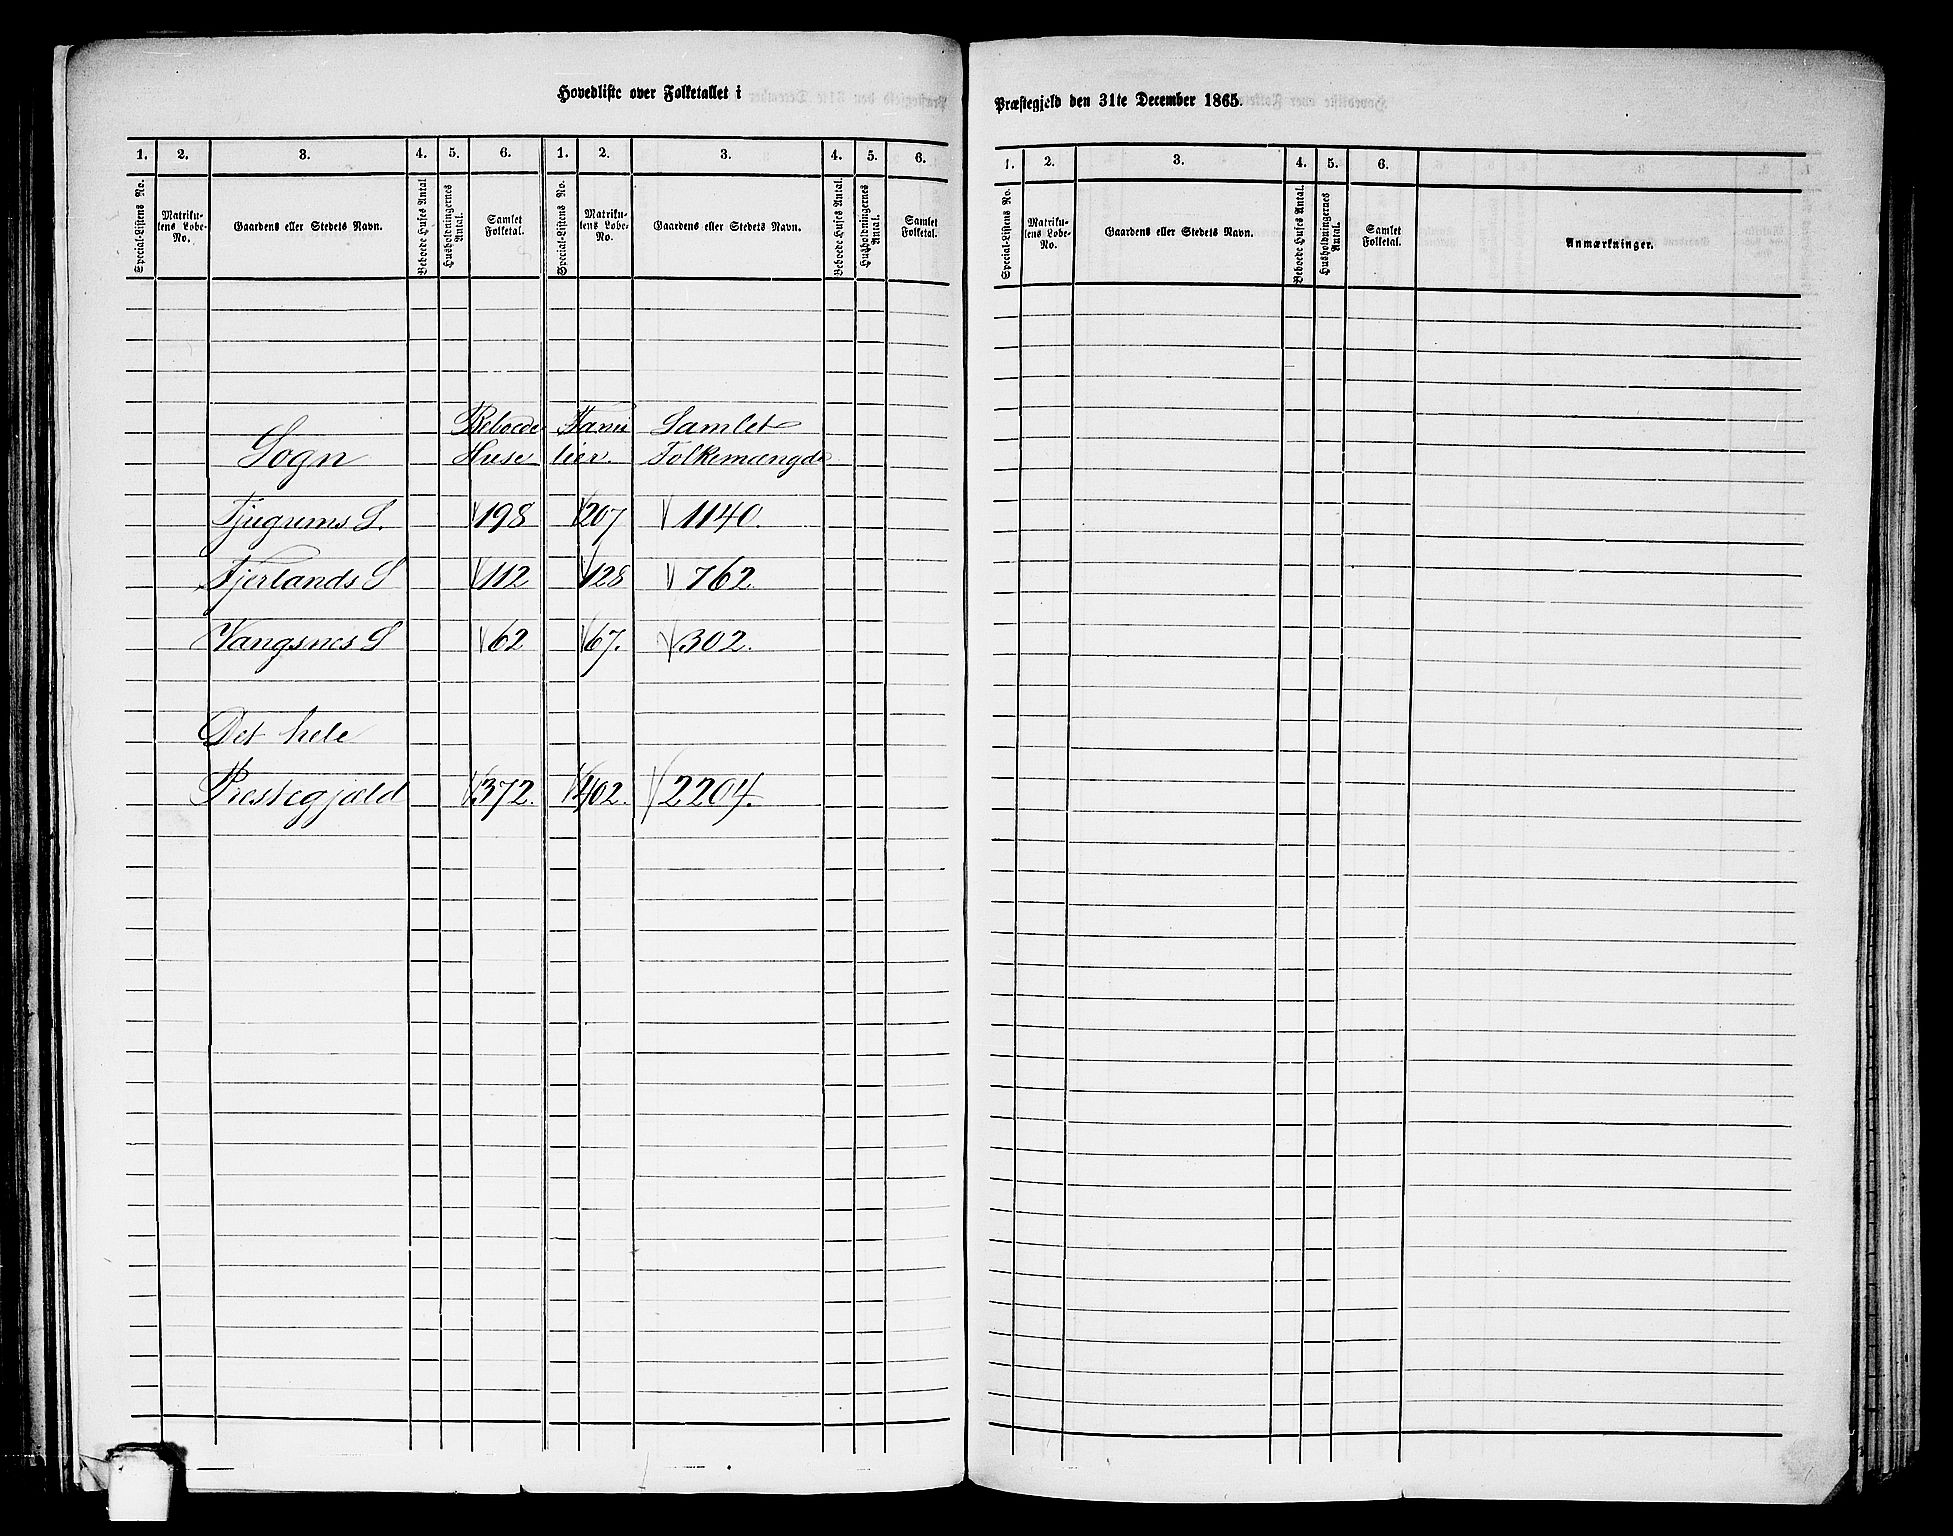 Hovedliste over Folketallet i
Præstegjeld den 31te December 1865.
1. 2. 3. 4. 5. 6. 1. 2. 3. 4. 5. 6.
Special-Listens No. Matrikulens Løbe-No. Gaardens eller Stedets Navn. Beboede Huses Antal Husholdningernes Antal. Samlet Folketal. Special-Listens No. Matrikulens Løbe-No. Gaardens eller Stedets Navn. Beboede Huses Antal. Husholdningernes Antal. Samlet Folketal.
Beboede Fami Samlet
Sogn Huse lier. Folkemængde
Tjugums S. 198 207 1140.
Fjerlands S 112 128 762.
Vangsnes S 62 67. 302.
Det hele
Præstegjæld 372. 402. 2204.
1. 2. 3. 4. 5. 6.
Special-Listens No. Matrikulens Løbe-No. Gaardens eller Stedets Navn. Beboede Huses Antal. Husholdningernes Antal. Samlet Folketal. Anmærkninger.